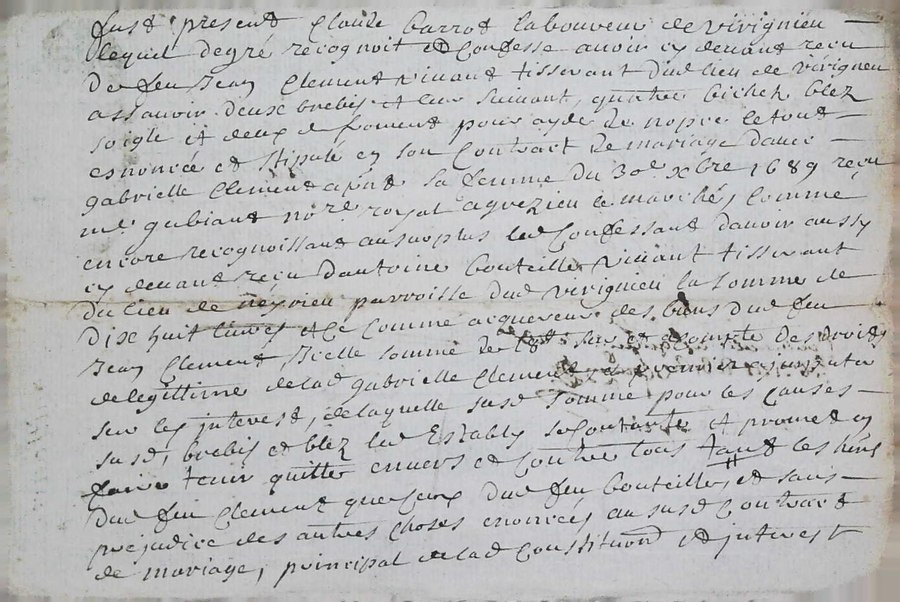 fust present Claude barrot laboureur de virignieu
lequel de gré recognoit et confesse avoir cy devant reçu
De feu Jean Clement vivant tisserant dud lieu de virignieu
assavoir deux brebis et leur suivant, quattre bichets blez
soigle et deux de froment pour ayde de nopce le tout
esnoncée et stipulé en son Contract de mariage d'avec
gabrielle Clement a pnt sa femme du 30e xbre 1689 reçu
me gubiant nore royal a grezieu le marché, comme
encore recognoissant au surplus led Confessant d'avoir aussy
cy devant reçu d'antoine bouteille vivant tisserant
du lieu de parroisse dud virignieu la somme de
Dix huit livres et ce comme acquereur des biens dud feu
Jean Clement, Icelle somme de 18# sus et a compte des droits
de legittime de lad gabrielle Clement et premier a imputer
sur les interest, de laquelle susd somme pour les causes
susd, brebis et blez led Estably se contante et promet en
faire tenir quitte envers et contre tous tant les hers
dud feu Clement que ceux dud feu bouteille, et sans
prejudice des autres choses enoncées au susd Contract
de mariage, principal de lad Constituon et interest